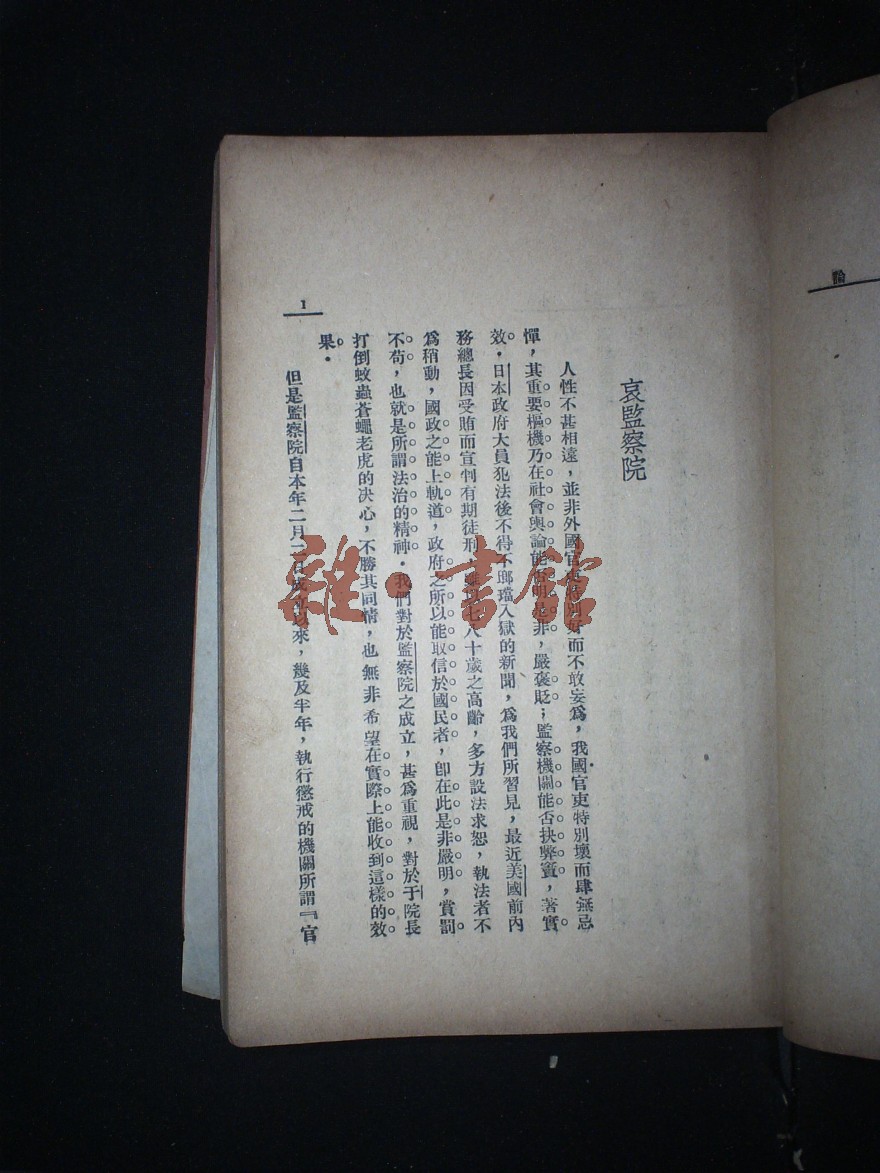 論
哀監察院
人性不甚相遠，並非外國官吏特別好而不敢妄爲，我國官吏特別壞而肆無忌
憚，其重要樞機乃在社會輿論能否明是非，嚴褒貶；監察機關能否抉弊竇，著實
效。日本政府大員犯法後不得不瑯璫入獄的新聞，爲我們所習見，最近美國前內
務總長因受賄而宣判有期徒刑，雖以七八十歲之高齡，多方設法求恕，執法者不
爲稍動，國政之能上軌道，政府之所以能取信於國民者，卽在此是非嚴明，賞罰
不苟，也就是所謂法治的精神。我們對於監察院之成立，甚爲重視，對於于院長
打倒蚊蟲蒼蠅老虎的决心，不勝其同情，也無非希望在實際上能收到這樣的效
果。
但是監察院自本年二月二日成立以來，幾及半年，執行懲戒的機關所謂『官
1
雜·書館